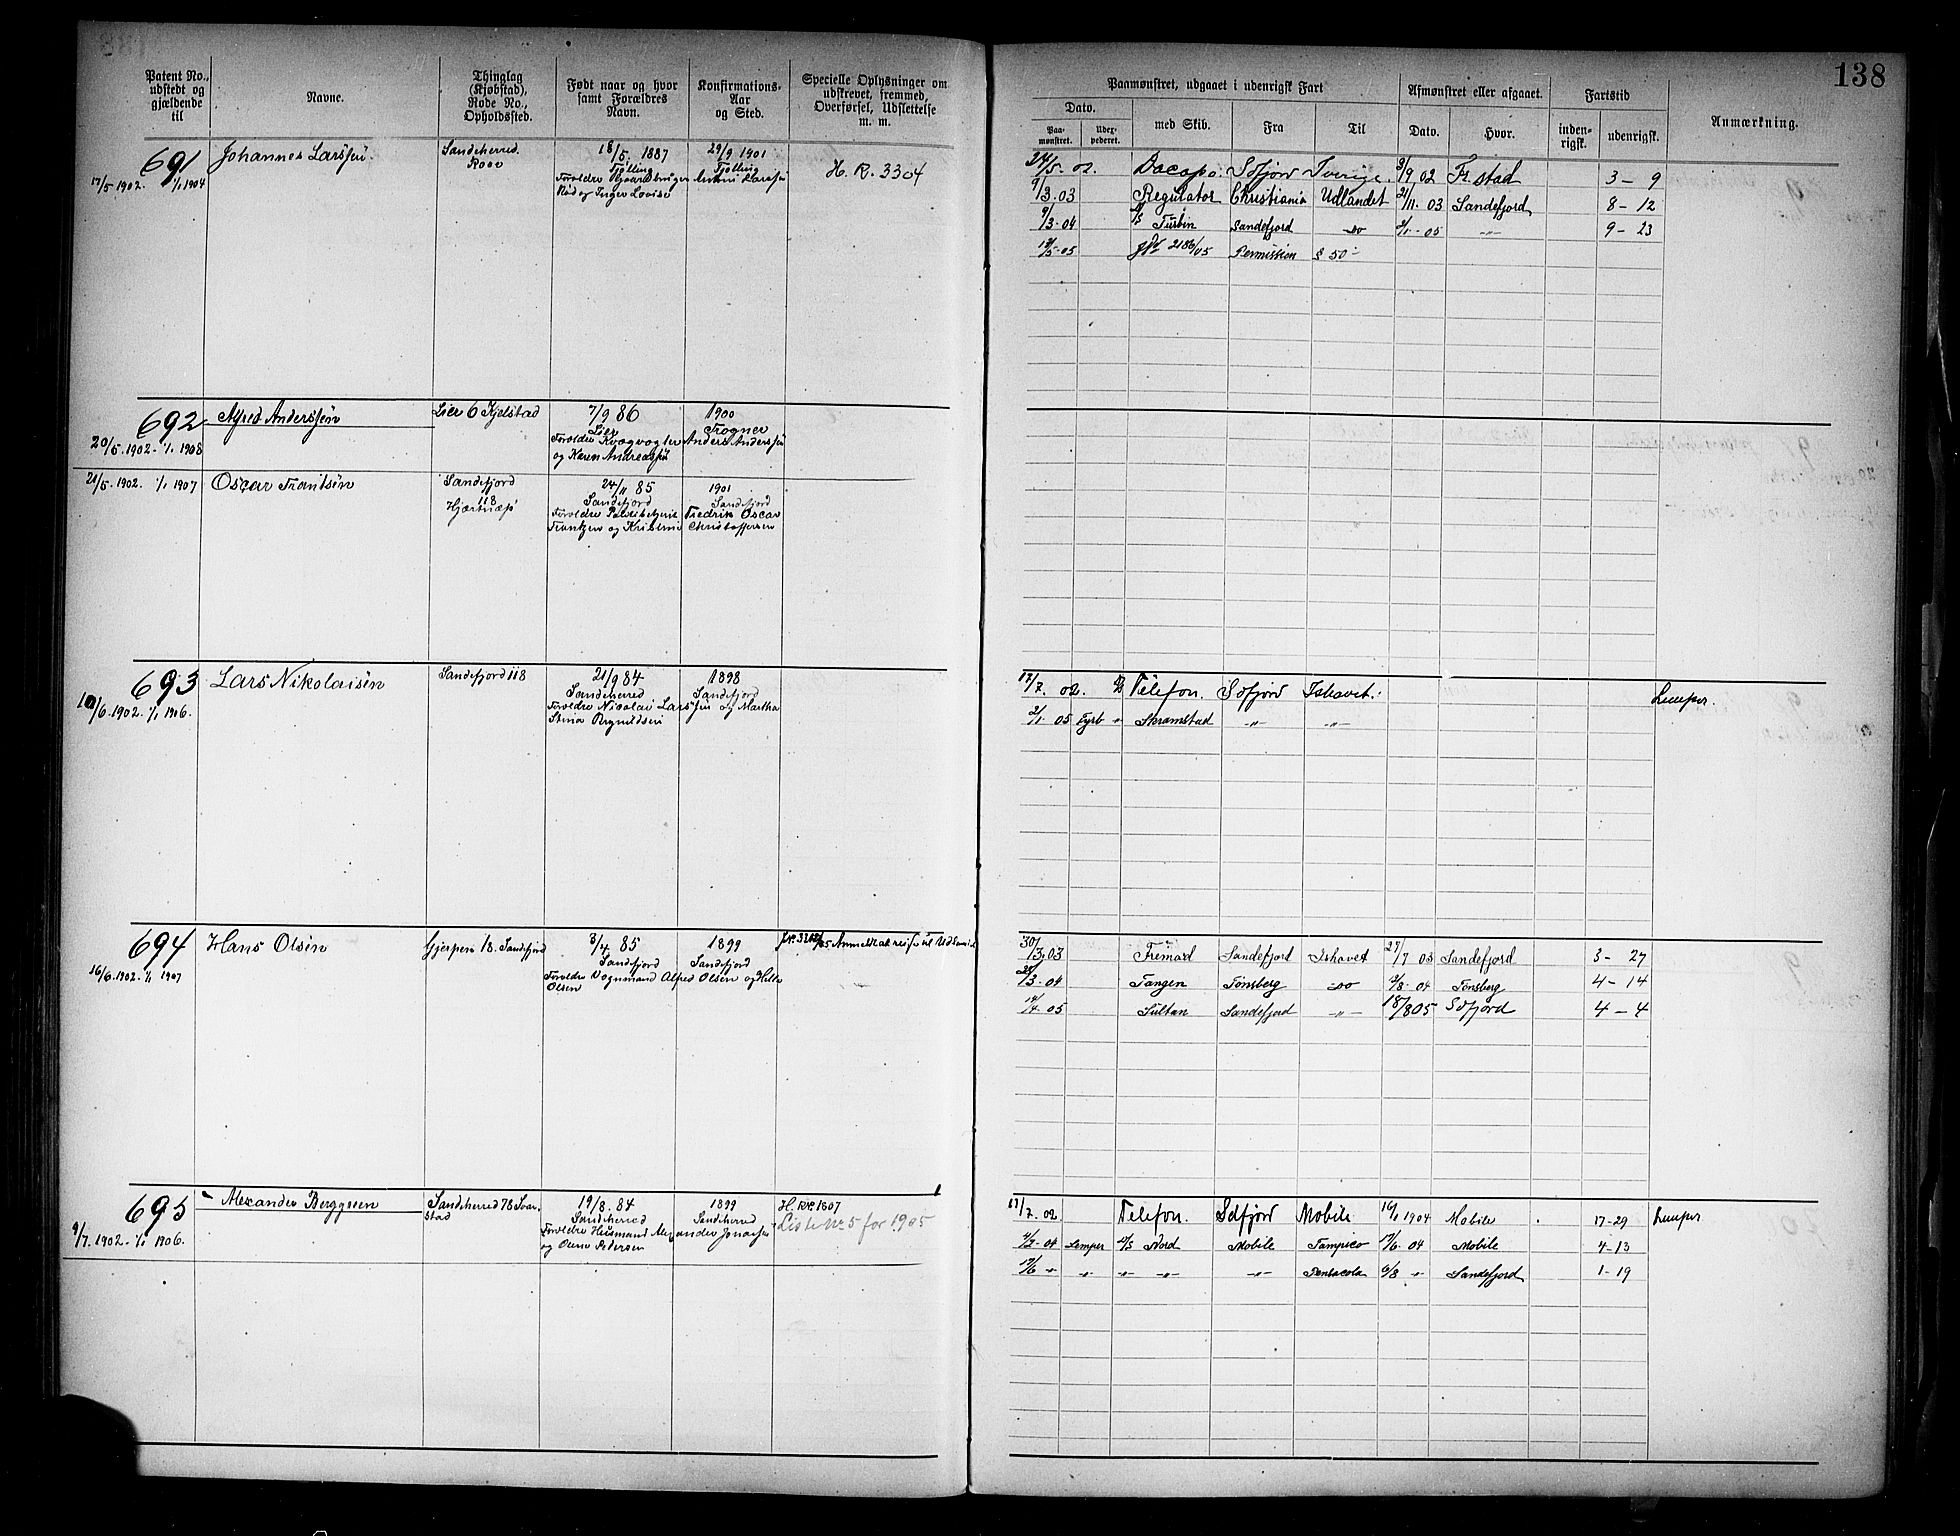 138
Patent No., udstedt og gjældende til
Navne.
Thinglag (Kjøbstad), Rode No., Opholdssted.
Født naar og hvor samt Forældres Navn.
Konfirmations-Aar og Sted.
Specielle Oplysninger om udskrevet, fremmed, Overførsel, Udslettelse m. m.
Paamønstret, udgaaet i udenrigsk Fart
Dato.
Paa-mønstret.
Uder-pederet.
med Skib.
Fra
Til
Afmønstret eller afgaaet.
Dato.
Hvor.
Fartstid
inden-rigsk.
udenrigsk.
Anmærkning.
691
17/5 1902. 1/1 1904
Johannes Larssen.
Sandeherred.
18/5 1887
Tjølling
29/9 1901
Tjølling
H. R. 3304
24/5. 02. Dacapo. Sdfjord Sverige. 3/9 02 Fr.stad 3 – 9
9/3. 03 Regulator Christiania Udlandet 21/11. 03 Sandefjord 8 – 12
9/3-04 Turbin Sandefjord -do- 2/1-05 -"- 9 – 23
2186/05 Permission § 50
692
20/5. 1902. 1/1 1908
Alfred Anderssen
Lier 6 Kjelstad
7/9 86
Lier
og Karen Andreassen
1900
Frogner
Anders Anderssen
21/5. 1902. 1/1 1907
Oscar Frantsen
Sandefjord
118
24/11 85
Sandefjord
Frantzen og Kristine
1901
Sandefjord
Fredrik Oscar
Christoffersen
693
10/6. 1902. 1/1 1906.
Lars Nikolaisen
Sandefjord 118
21/9 84
Sandeherred
Forældre Nicolai Larssen og Martha
1898
Sandefjord
17/7. 02. Telefon. Sdfjord Ishavet. Lemper.
2/1. 05 Fyrb " Skramstad -"- -"-
694
16/6. 1902. 1/1 1907
Hans Olsen
Gjerpen 18. Sandefjord
3/4. 85
Sandefjord
Forældre Vognmand Alfred Olsen og
Olsen
1899
Sandefjord
30/3. 03 Fremad Sandefjord Ishavet 27/7 03 Sandefjord 3 – 27
3-04 Tangen Tønsberg -do- 12/8-04 Tønsberg 4 – 14
14/4. 05 Sultan Sandefjord -"- 18/8 05 Sdfjord 4 – 4
695
9/7. 1902. 1/1 1906.
Alexander Berggreen
Sandeherred 78
19/8. 84
Sandeherred
Forældre Husmand
og Pedersen
1899
Sandeherred
H. R. No. 1607
Liste No. 5 for 1905
17/7. 02. Telefon. Sdfjord Mobile 16/1 1904 Mobile 17-29 Lemper
04 Lemper Nord Mobile Tampico 04 Mobile 4-13
" " " -"- -"- Pensacola 6/8 " Sandefjord 1-19